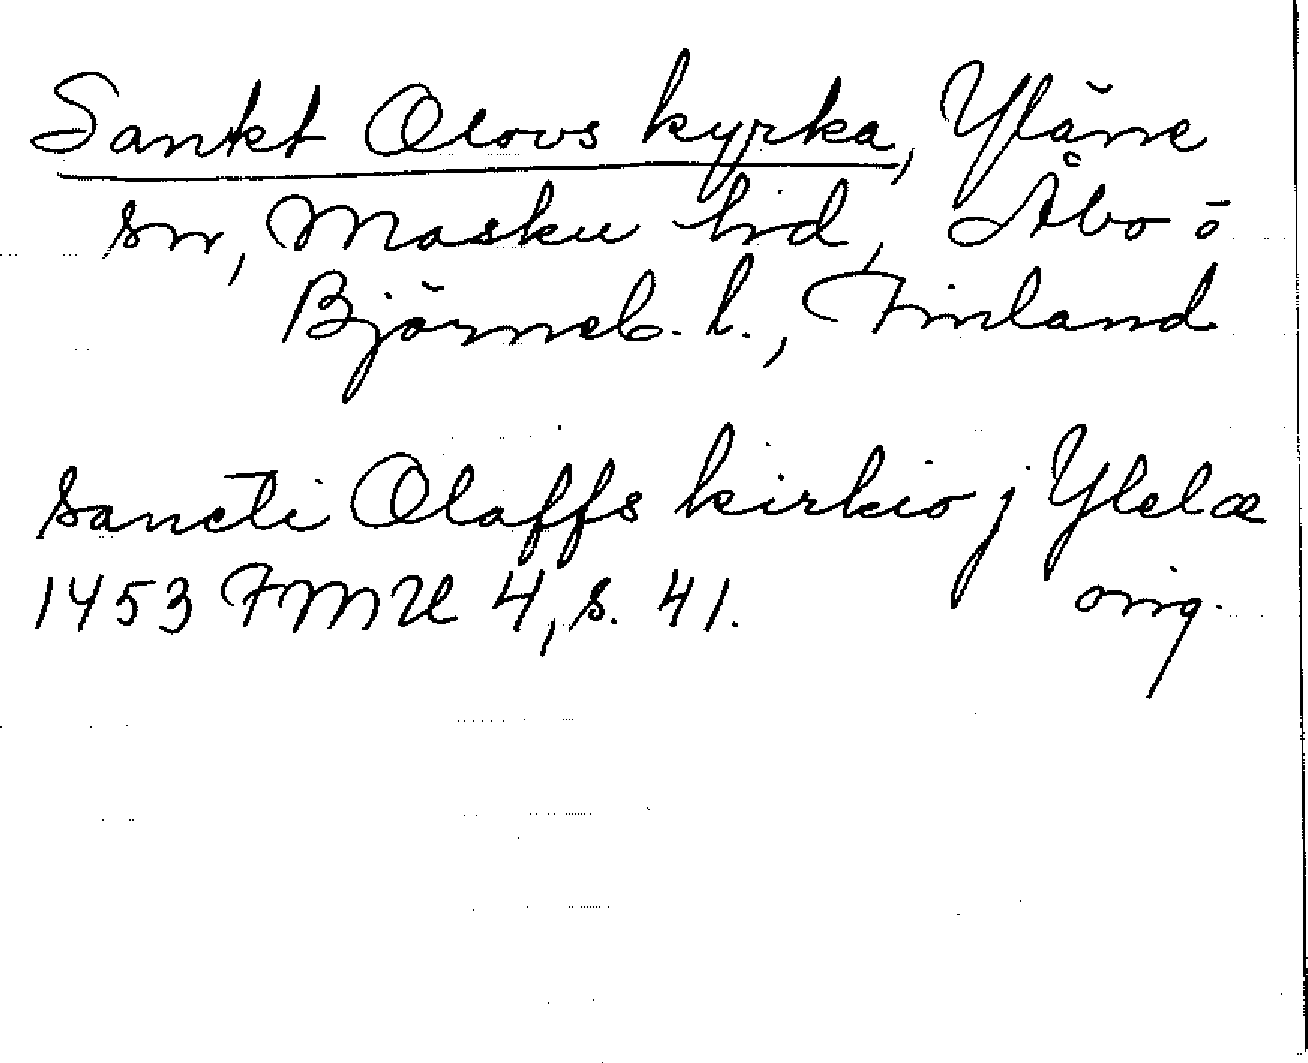 Sankt Olovs kyrka, Yläne
sn, Masku hd, Åbo o
Björneb. l., Finland
sancti Olaffs kirkio j Ylelæ
1453 FMU 4, s. 41. orig.